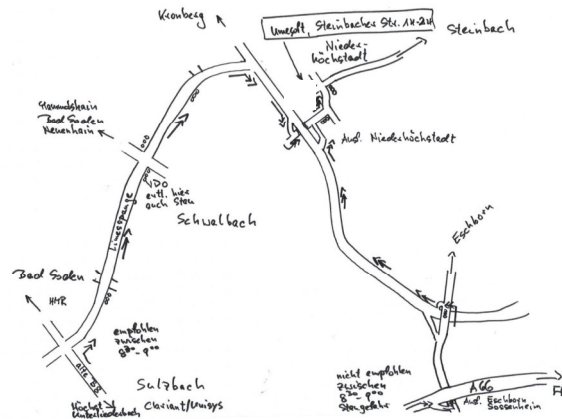 Kronberg
Umesoft, Steinbacher Str. 1H-2H
Nieder-
höchstadt
Steinbach
Bad Soden
Neuenhain
Ausf. Niederhöchstadt
VDO
evtl. hier
auch Stau
Limesspange
Schwalbach
Eschborn
Bad Soden
HMR
empfohlen
zwischen
8³⁰-9⁰⁰
alte B8
Sulzbach
Höchst
Unterliederbach
Clariant/Unisys
nicht empfohlen
zwischen
8³⁰-9⁰⁰
Staugefahr
A66
Ausf. Eschborn
Sossenheim